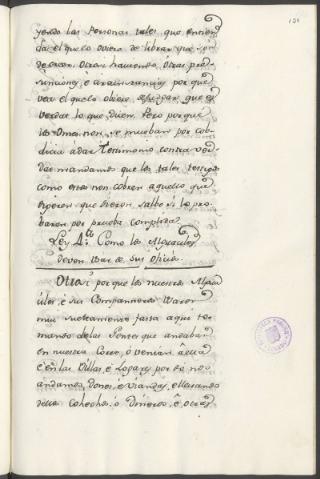 yendo las Personas tales, que entien
da el que lo oviere de librar que son
de creer. Otrosi haviendo Otras pre
sunciones, è circunstancias por que
vea el que lo obiere que es
verdat lo que dicen. Pero por que
los Omes non se muevan por cob
dicia à dar Testimonio contra ver
dat mandamos que los tales testigos
como estos non cobren aquello que
dixeren que dieron, salbo si lo pro
baren por prueba complida.
Ley 4.ª Como los Alguaciles
deven usar de sus oficios
Otrosi por que los nuestros Algua
ciles, è sus Compañeros usaron
mui sueltamente fasta aqui to
mando de las Gentes que andaban
en nuestra Corte, ò venian à ella
è en las Villas, è Logares por do nos
andamos, Dones, è viandas, e llevando
Cohechos, ò Dineros, è otras